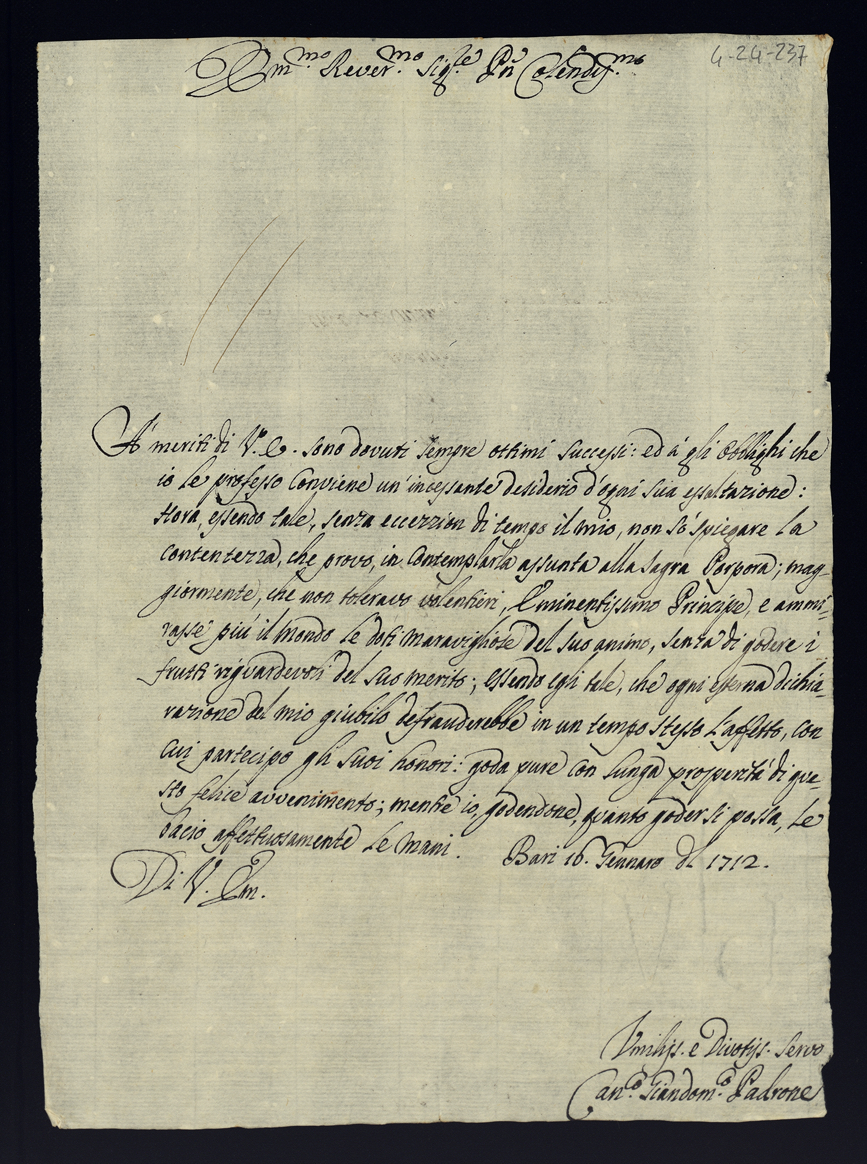 4-24-237
Em.mo Rever.mo Sig.re Pñ Colendis.mo
A' meriti di V.E. sono dovuti sempre ottimi successi: ed à gli obblighi che
io le professo conviene un'incessante desiderio d'ogni sua essaltazione:
Hora, essendo tale, senza eccezzion di tempo il mio, non sò spiegare la
contentezza, che provo, in contemplarla assunta alla Sagra Porpora; mag-
giormente, che non toleravo volentieri, Eminentissimo Principe, e ammi-
rasse più il mondo le doti maravigliose del suo animo, senza di godere i
frutti riguardevoli del suo merito; essendo egli tale, che ogni esterna dichia-
razione del mio giubilo defrauderebbe in un tempo stesso l'affetto, con
cui partecipo gli suoi honori: goda pure con lunga prosperità di que-
sto felice avvenimento; mentre io, godendone, quanto goder si possa, le
bacio affettuosamente le mani. Bari 16. Gennaro del 1712.
Di V. Em.
Umiliss. e Divotiss. Servo
Can.co Giandom.co Padrone